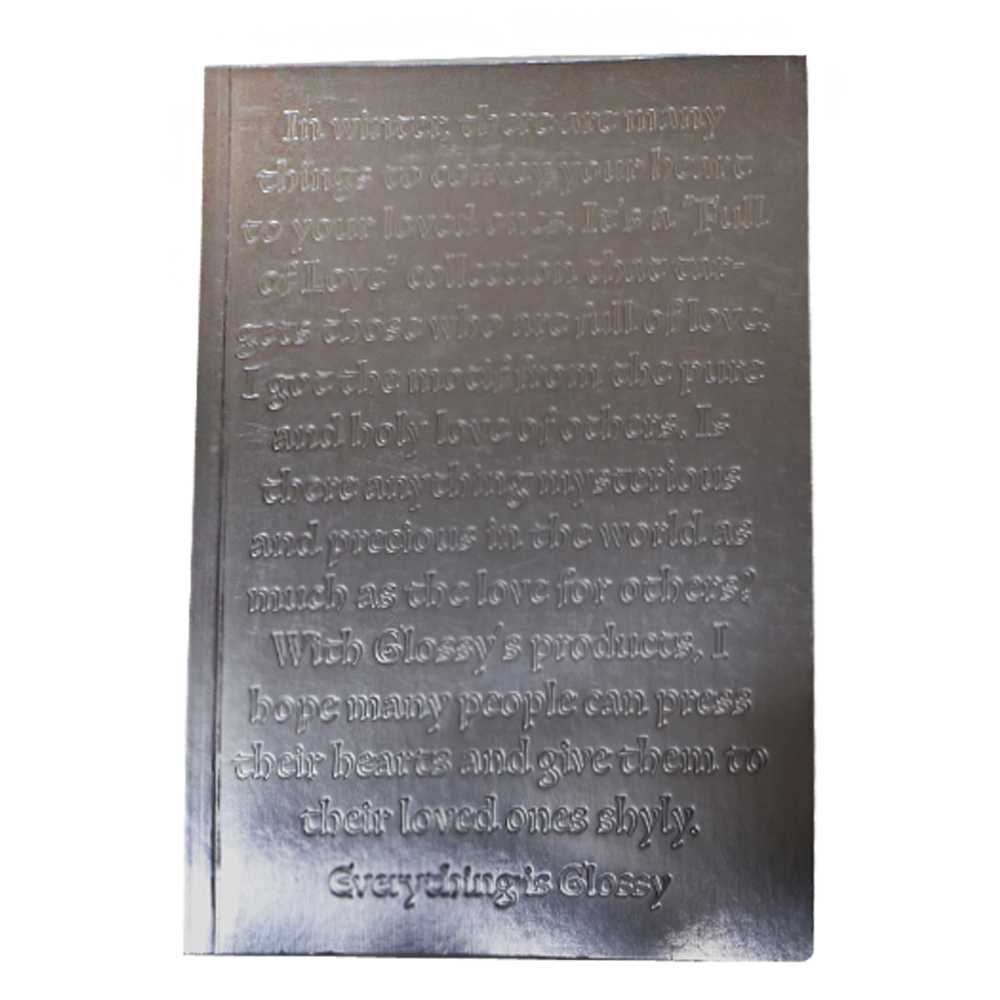 In winter, there are many
things to convey your heart
to your loved ones. It's a "Full
of Love" collection that tar-
gets those who are full of love.
I got the motif from the pure
and holy love of others. Is
there anything mysterious
and precious in the world as
much as the love for others?
With Glossy's products, I
hope many people can press
their hearts and give them to
their loved ones shyly.
Everything is Glossy